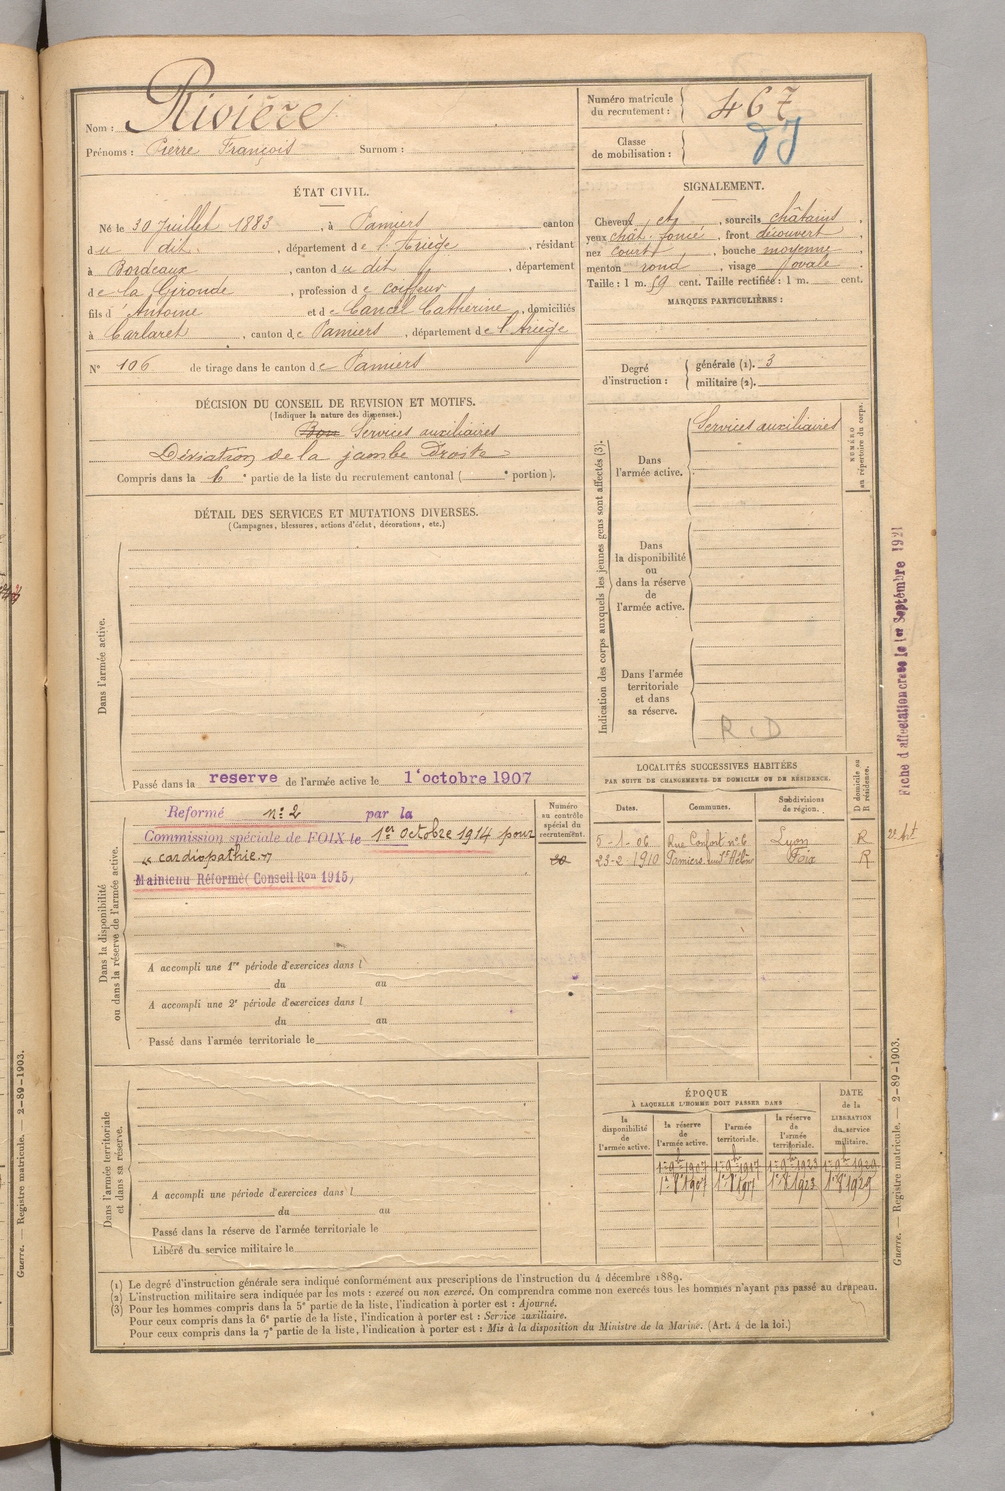 Nom : Rivière
Prénoms : Pierre François Surnom :
Numéro matricule du recrutement : 467
Classe de mobilisation :
ÉTAT CIVIL.
Né le 30 Juillet 1883, à Pamiers canton
du dit, département de l'Ariège, résidant
à Bordeaux, canton du dit, département
de la Gironde, profession de coiffeur
fils d'Antoine et de Cancel Catherine, domiciliés
à Carlaret, canton de Pamiers, département de l'Ariège
N° 106 de tirage dans le canton de Pamiers
SIGNALEMENT.
Cheveux et, sourcils châtains,
yeux chât. foncé, front découvert,
nez court, bouche moyenne,
menton rond, visage ovale.
Taille : 1 m. 59 cent. Taille rectifiée : 1 m. cent.
MARQUES PARTICULIÈRES :
Degré d'instruction : générale (1). 3
militaire (2).
DÉCISION DU CONSEIL DE REVISION ET MOTIFS.
(Indiquer la nature des dispenses.)
Bon Services auxiliaires
Déviation de la jambe Droite
Compris dans la 6e partie de la liste du recrutement cantonal ( e portion).
DÉTAIL DES SERVICES ET MUTATIONS DIVERSES.
(Campagnes, blessures, actions d'éclat, décorations, etc.)
Dans l'armée active.
Passé dans la reserve de l'armée active le 1 octobre 1907
Indication des corps auxquels les jeunes gens sont affectés (3).
NUMÉRO au répertoire du corps.
Dans l'armée active. Services auxiliaires
Dans la disponibilité ou dans la réserve de l'armée active.
Dans l'armée territoriale et dans sa réserve.
R D
Fiche d affectation créée le 1er Septembre 1921
Dans la disponibilité ou dans la réserve de l'armée active.
Numéro au contrôle spécial du recrutement.
Reformé n° 2 par la
Commission spéciale de FOIX le 1er octobre 1914 pour
« cardiopathie »
Maintenu Réformé ( Conseil Ron 1915)
A accompli une 1re période d'exercices dans l
du au
A accompli une 2e période d'exercices dans l
du au
Passé dans l'armée territoriale le
LOCALITÉS SUCCESSIVES HABITÉES
PAR SUITE DE CHANGEMENTS DE DOMICILE OU DE RÉSIDENCE.
Dates. Communes. Subdivisions de région. D domicile ou R résidence.
5-1-06 Rue Confort n° 6 Lyon R
23-2-1910 Pamiers Foix R
Dans l'armée territoriale et dans sa réserve.
A accompli une période d'exercices dans l
du au
Passé dans la réserve de l'armée territoriale le
Libéré du service militaire le
ÉPOQUE
À LAQUELLE L'HOMME DOIT PASSER DANS
la disponibilité de l'armée active. la réserve de l'armée active. l'armée territoriale. la réserve de l'armée territoriale.
DATE de la LIBÉRATION du service militaire.
1er 9bre 1907 1er 9bre 1917 1er 9bre 1923 1er 9bre 1929
1er 8bre 1907 1er 8bre 1917 1er 8bre 1923 1er 8bre 1929
(1) Le degré d'instruction générale sera indiqué conformément aux prescriptions de l'instruction du 4 décembre 1889.
(2) L'instruction militaire sera indiquée par les mots : exercé ou non exercé. On comprendra comme non exercés tous les hommes n'ayant pas passé au drapeau.
(3) Pour les hommes compris dans la 5e partie de la liste, l'indication à porter est : Ajourné.
Pour ceux compris dans la 6e partie de la liste, l'indication à porter est : Service auxiliaire.
Pour ceux compris dans la 7e partie de la liste, l'indication à porter est : Mis à la disposition du Ministre de la Marine. (Art. 4 de la loi.)
Guerre. — Registre matricule. — 2-89-1903.
Guerre. — Registre matricule. — 2-89-1903.